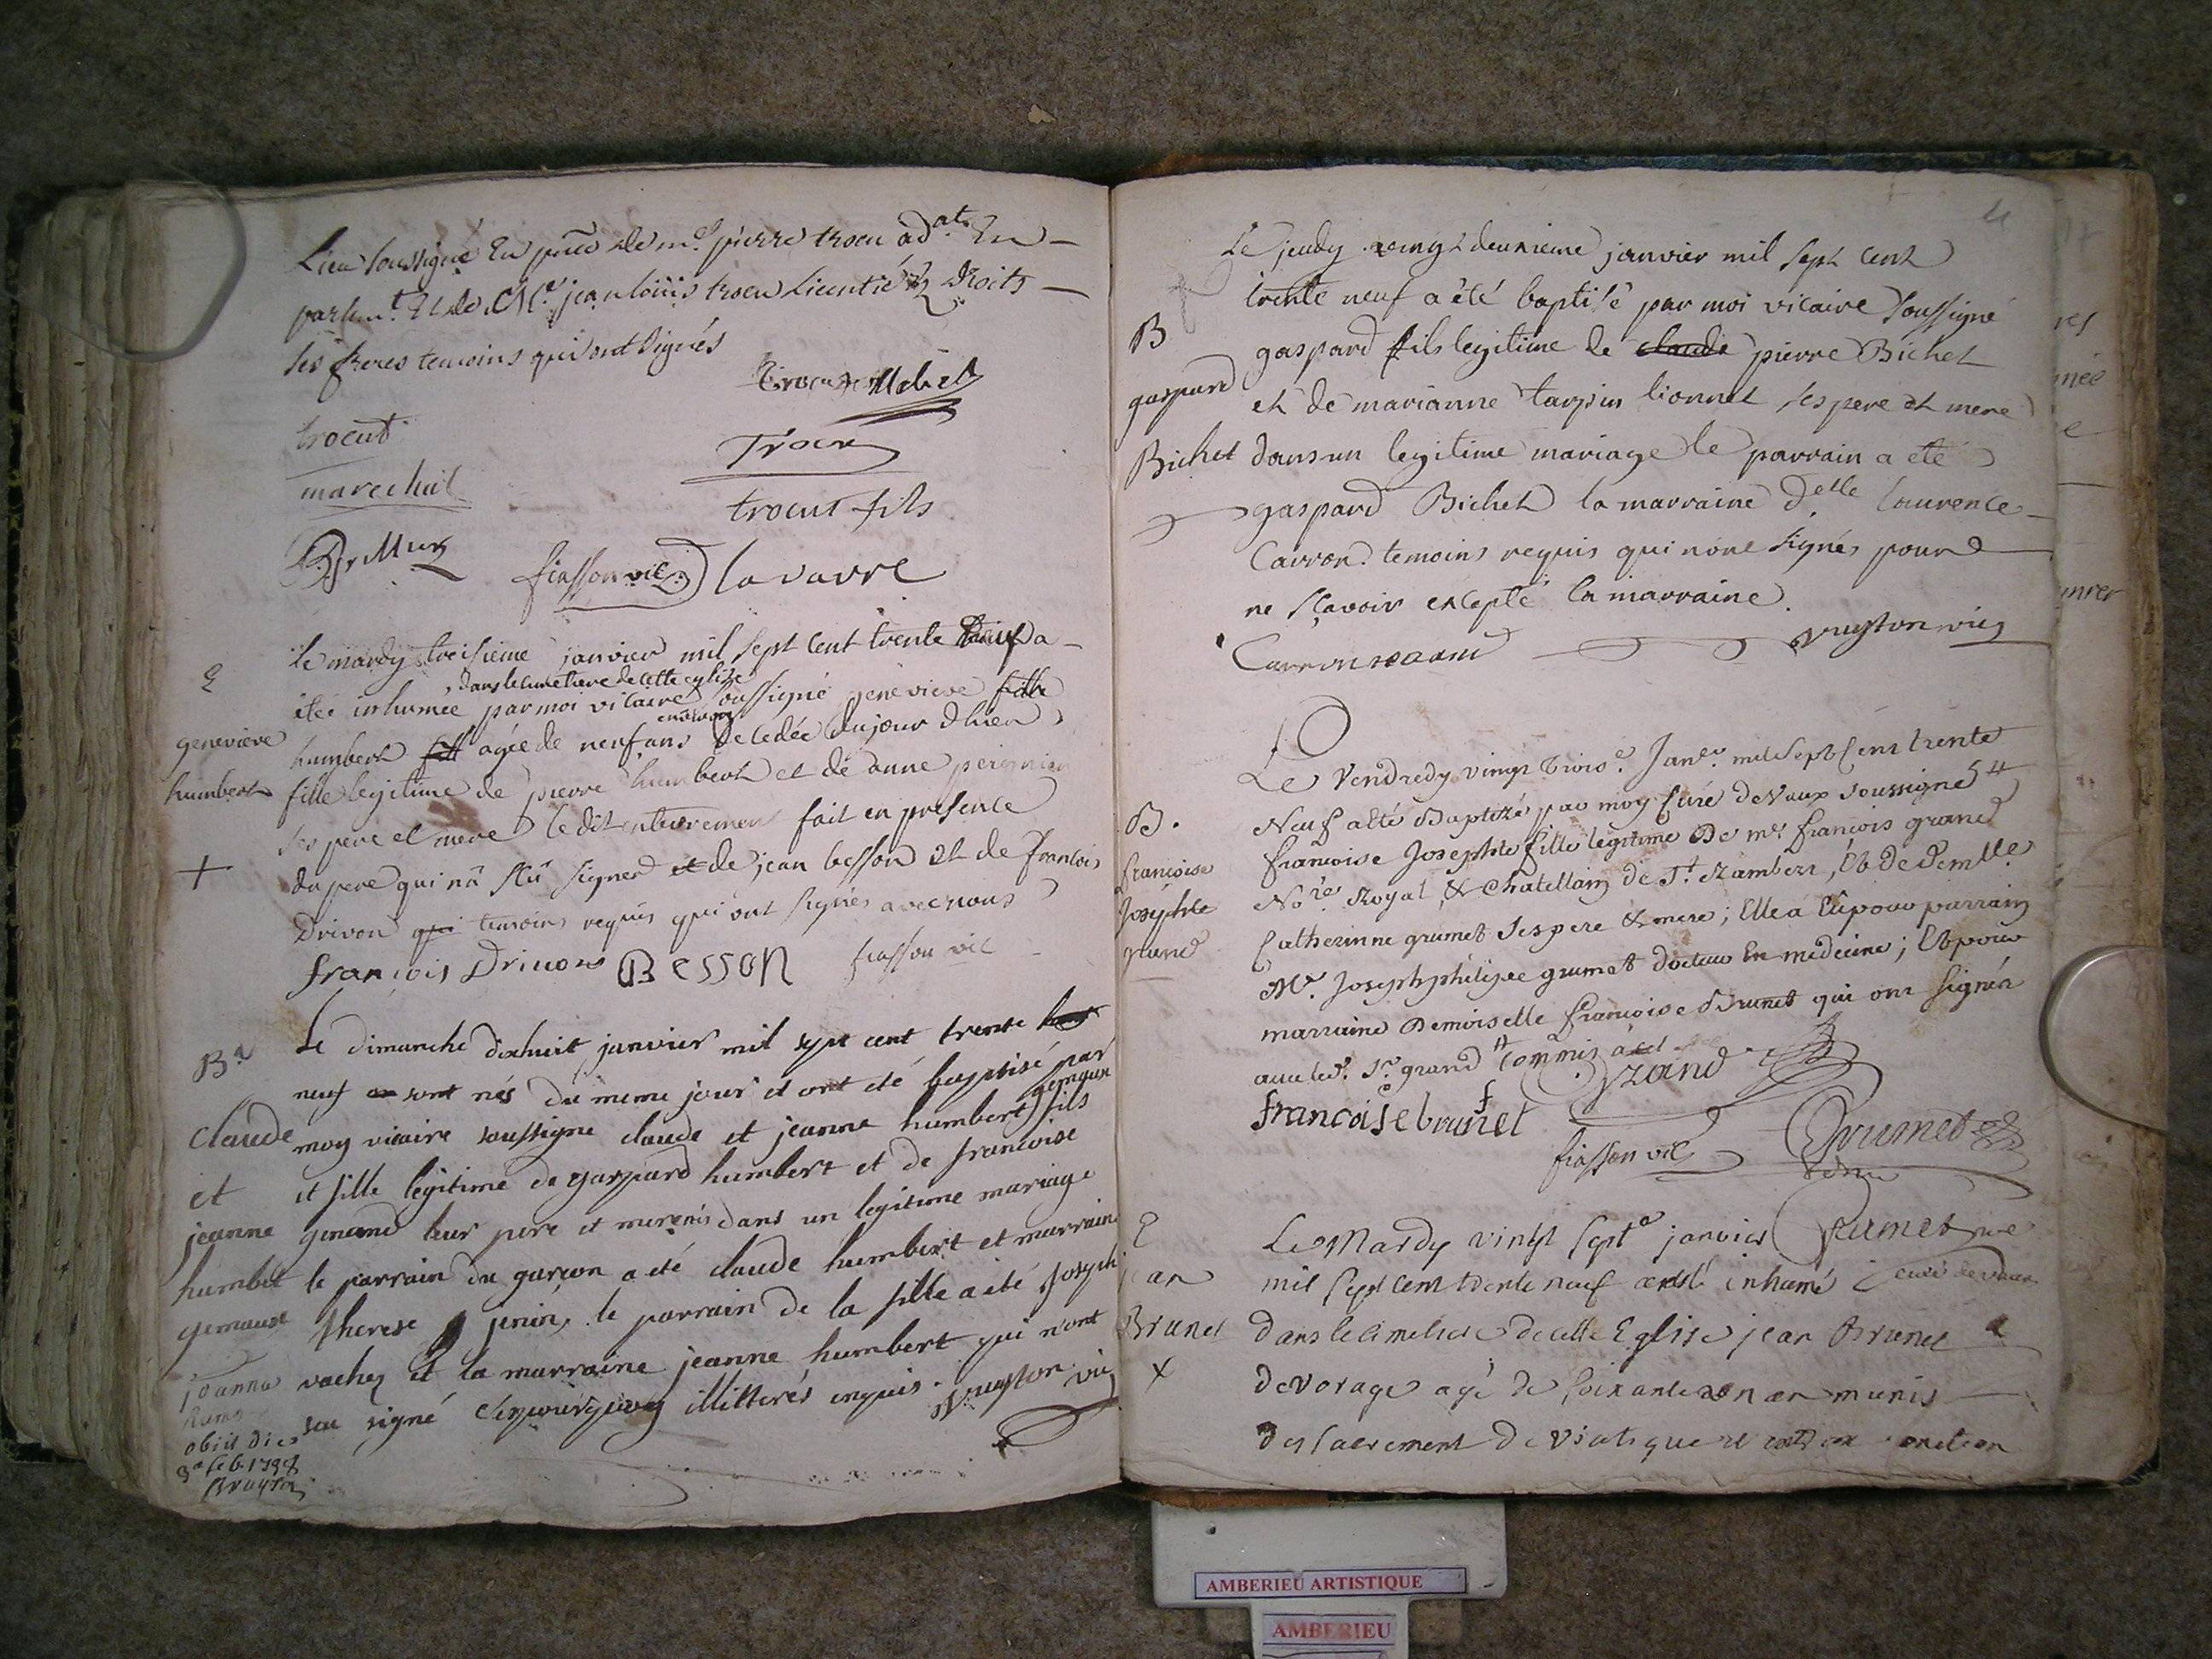 Lieu soussigné En pnce de me pierre trocu adat En
parlemt. Et de Me. jean louis trocu Licentié Droits
ses freres temoins qui ont signés
trocut
Trocu
marechal
trocut fils
fiasson vic
lavavre
E
le mardy treisieme janvier mil sept cent trente neuf a
dans le cimetiere de cette eglise
étée inhumée par moi vicaire soussigné genevieve fille
environ
genevieve
humbert
humbert fill agée de neuf ans decedée du jour dhier
fille legitime de pierre humbert et de anne
ses pere et mere ledit enterrement fait en presence
+
du pere qui n'a sçû signer et de jean besson et de francois
Drivon qui temoins requis qui ont signés avec nous
françois Drivons BESSON fiasson vic
Ba
Claude
et
jeanne
humbert
gemaux
Le dimanche dixhuit janvier mil sept cent trente huit
neuf sont nés du meme jour et ont eté baptisé par
gemaux
moy vicaire soussigne claude et jeanne humbert fils
et fille legitime de gaspard humbert et de francoise
genand leur pere et mere unis dans un legitime mariage
le parrain du garçon a eté claude humbert et marraine
therese jenin, le parrain de la fille a eté joseph
vachez et la marraine jeanne humbert qui n'ont
sçu signé illitterés enquis. vuyton vic
joanna
obiit die
3a feb. 1739
Bruyton
4
Le jeudy vingt deuxieme janvier mil sept cent
trente neuf a été baptisé par moi vicaire soussigné
B
gaspard
Bichet
gaspard fils legitime de claude pierre Bichet
et de marianne tarpin lionnet ses pere et mere
dans un legitime mariage le parrain a eté
gaspard Bichet la marraine delle laurence
Carron temoins requis qui n'ont signés pour
ne sçavoir excepté la marraine.
vuyton vic
Le Vendredy vingt trois.e Janer. mil Sept Cent trente
B.
françoise
Josephte
grand
Neuf a été Baptizée par moy Curé de Vaux soussigné
françoise Josephte fille legitime De mr. françois grand
Nore. Royal, & Chatellain de St. Rambert, Et de demlle.
Catherinne grumet ses pere & mere; Elle a Eû pour parrain
Mr. Joseph philipe grumet docteur En medecine; Et pour
marraine Demoiselle françoise Brunet qui ont signés
avec led. Sr. grand commis a cet
grand
francoise brunet
fiasson vic
Grumet
Grumet ptre
curé de vaux
E
jean
Brunet
x
Le Mardy vintst septe janvier
mil sept cent trente neuf a esté inhumé
dans le cimetiere de cette Eglise jean Brunet
de vorage agé de soixante munis
des sacrement de viatique et extrem onction
AMBERIEU ARTISTIQUE
AMBERIEU